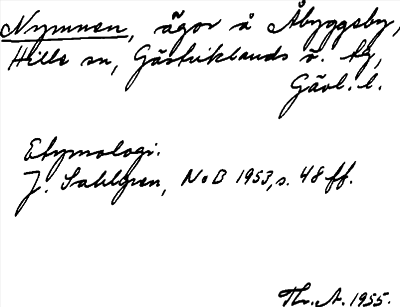 Nymnen, ägor å Åbyggeby,
Hille sn, Gästriklands ö. tg,
Gävl. l.
Etymologi.
J. Sahlgren, NoB 1953, s. 48 ff.
Thr. A. 1955.